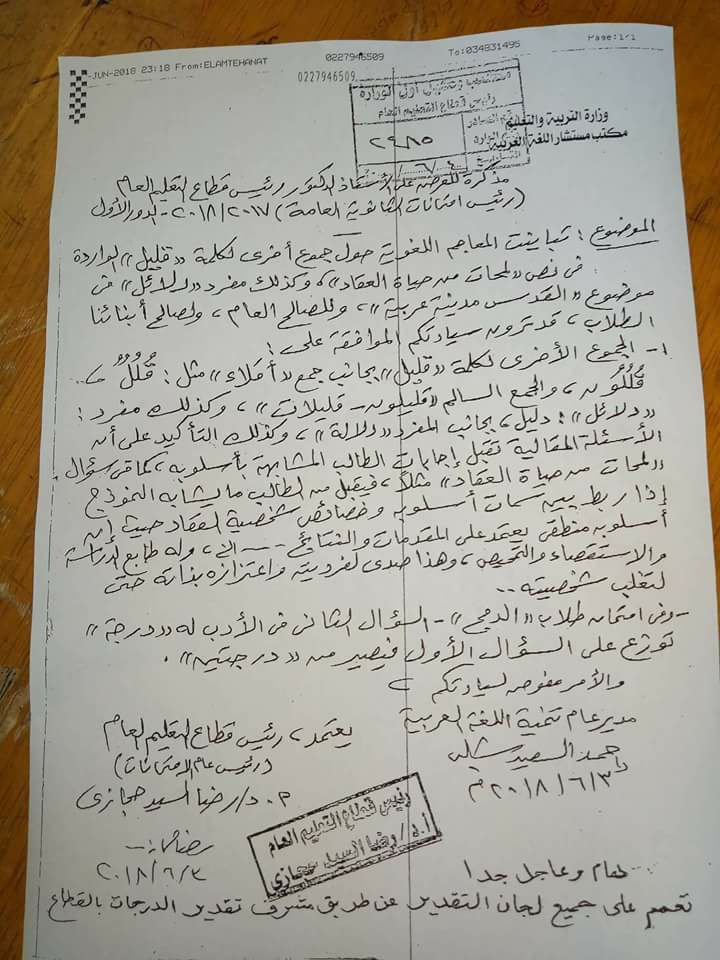 -JUN-2018 23:18 From:ELAMTEHANAT 0227946509 To:034831495 Page:1/1
0227946509
رئيس قطاع التعليم العام
وزارة التربية والتعليم
مكتب مستشار اللغة العربية
٢٩٨٥
مذكرة للعرض على الأستاذ الدكتور رئيس قطاع التعليم العام
(رئيس امتحانات الثانوية العامة) ٢٠١٨/٢٠١٧ - الدور الأول
الموضوع : تباينت المعاجم اللغوية حول جموع أخرى لكلمة «قليل» الواردة
فى نص «لمحات من حياة العقاد»، وكذلك مفرد «دلائل» فى
موضوع «القدس مدينة عربية»، وللصالح العام، ولصالح أبنائنا
الطلاب، قد ترون سيادتكم الموافقة على :
١- الجموع الأخرى لكلمة «قليل» بجانب جمع «أقلاء» مثل : قُلُلٌ
قُلُلُون، والجمع السالم «قليلون - قليلات»، وكذلك مفرد :
«دلائل» : دليل، بجانب المفرد «دلالة»، وكذلك التأكيد على أن
الأسئلة المقالية تقبل إجابات الطالب المشابهة بأسلوبه، كما فى سؤال
«لمحات من حياة العقاد» مثلاً، فيقبل من الطالب ما يشابه النموذج
إذا ربط بين سمات أسلوبه وخصائص شخصية العقاد حيث إن
أسلوبه منطقى يعتمد على المقدمات والنتائج --- الخ، وله طابع الدراسة
والاستقصاء والتمحيص، وهذا صدى لفرديته واعتزازه بذاته حتى
لتغلب شخصيته ..
- وفى امتحان طلاب «الدمج» - السؤال الثانى فى الأدب له «درجة»
توزع على السؤال الأول فيصير من «درجتين» .
والأمر مفوض لسيادتكم
مدير عام تنمية اللغة العربية
٢٠١٨/٦/٣م
يعتمد، رئيس قطاع التعليم العام
(رئيس عام الامتحانات)
د/ رضا السيد حجازى
٢٠١٨/٦/٣
رئيس قطاع التعليم العام
أ.د/ رضا السيد حجازى
هام وعاجل جدا
تعمم على جميع لجان التقدير عن طريق مشرف تقدير الدرجات بالقطاع